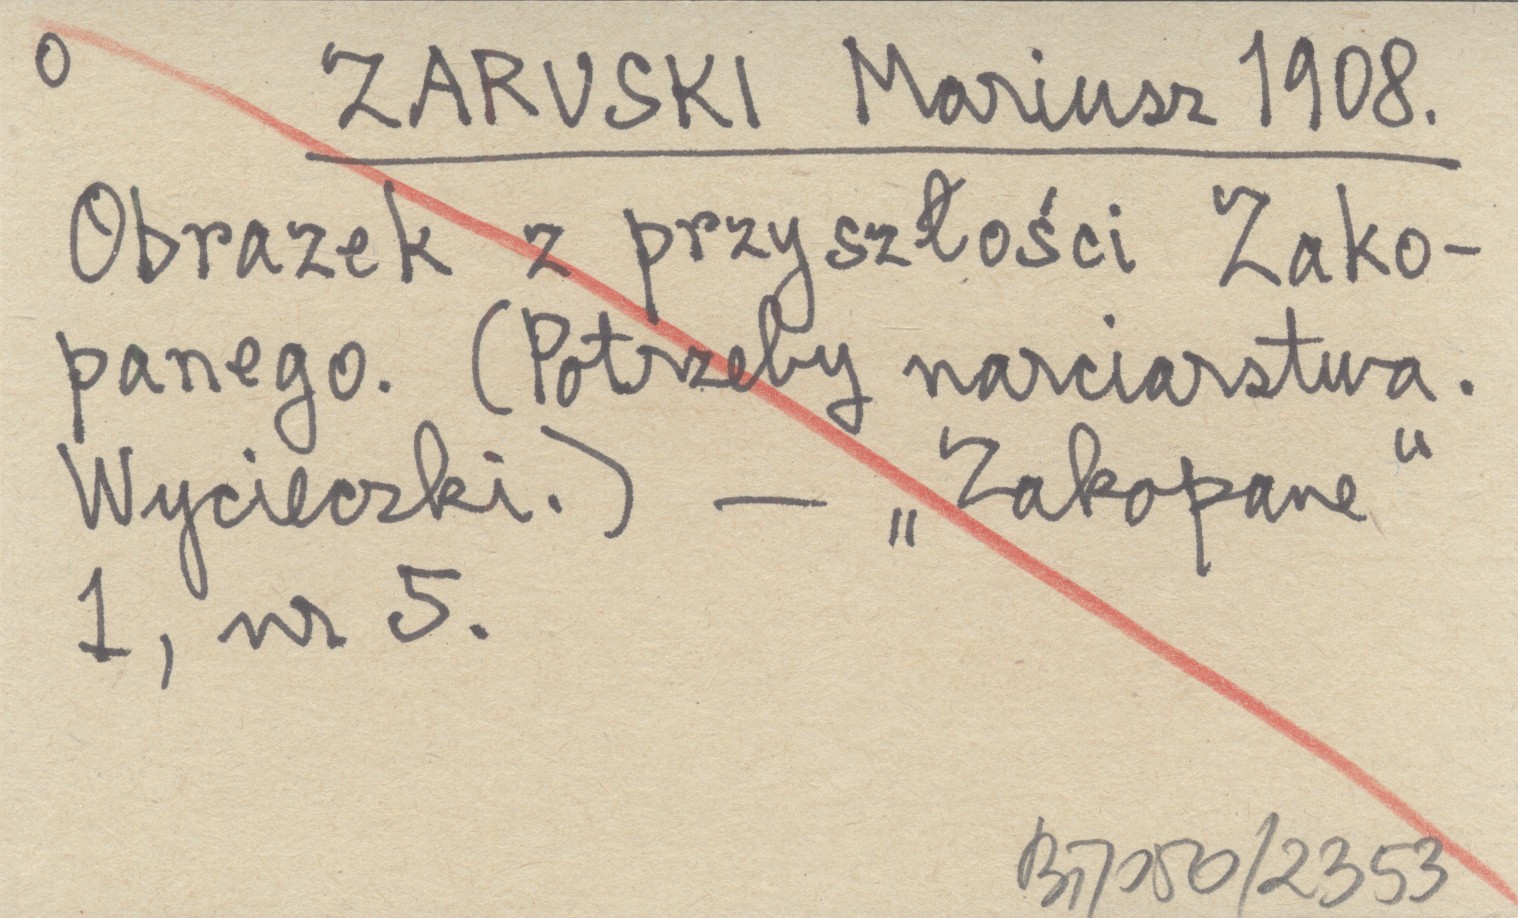 o
ZARUSKI Mariusz 1908.
Obrazek z przyszłości Zako-
panego. (Potrzeby narciarstwa.
Wycieczki.) — „Zakopane“
1, nr 5.
/2353